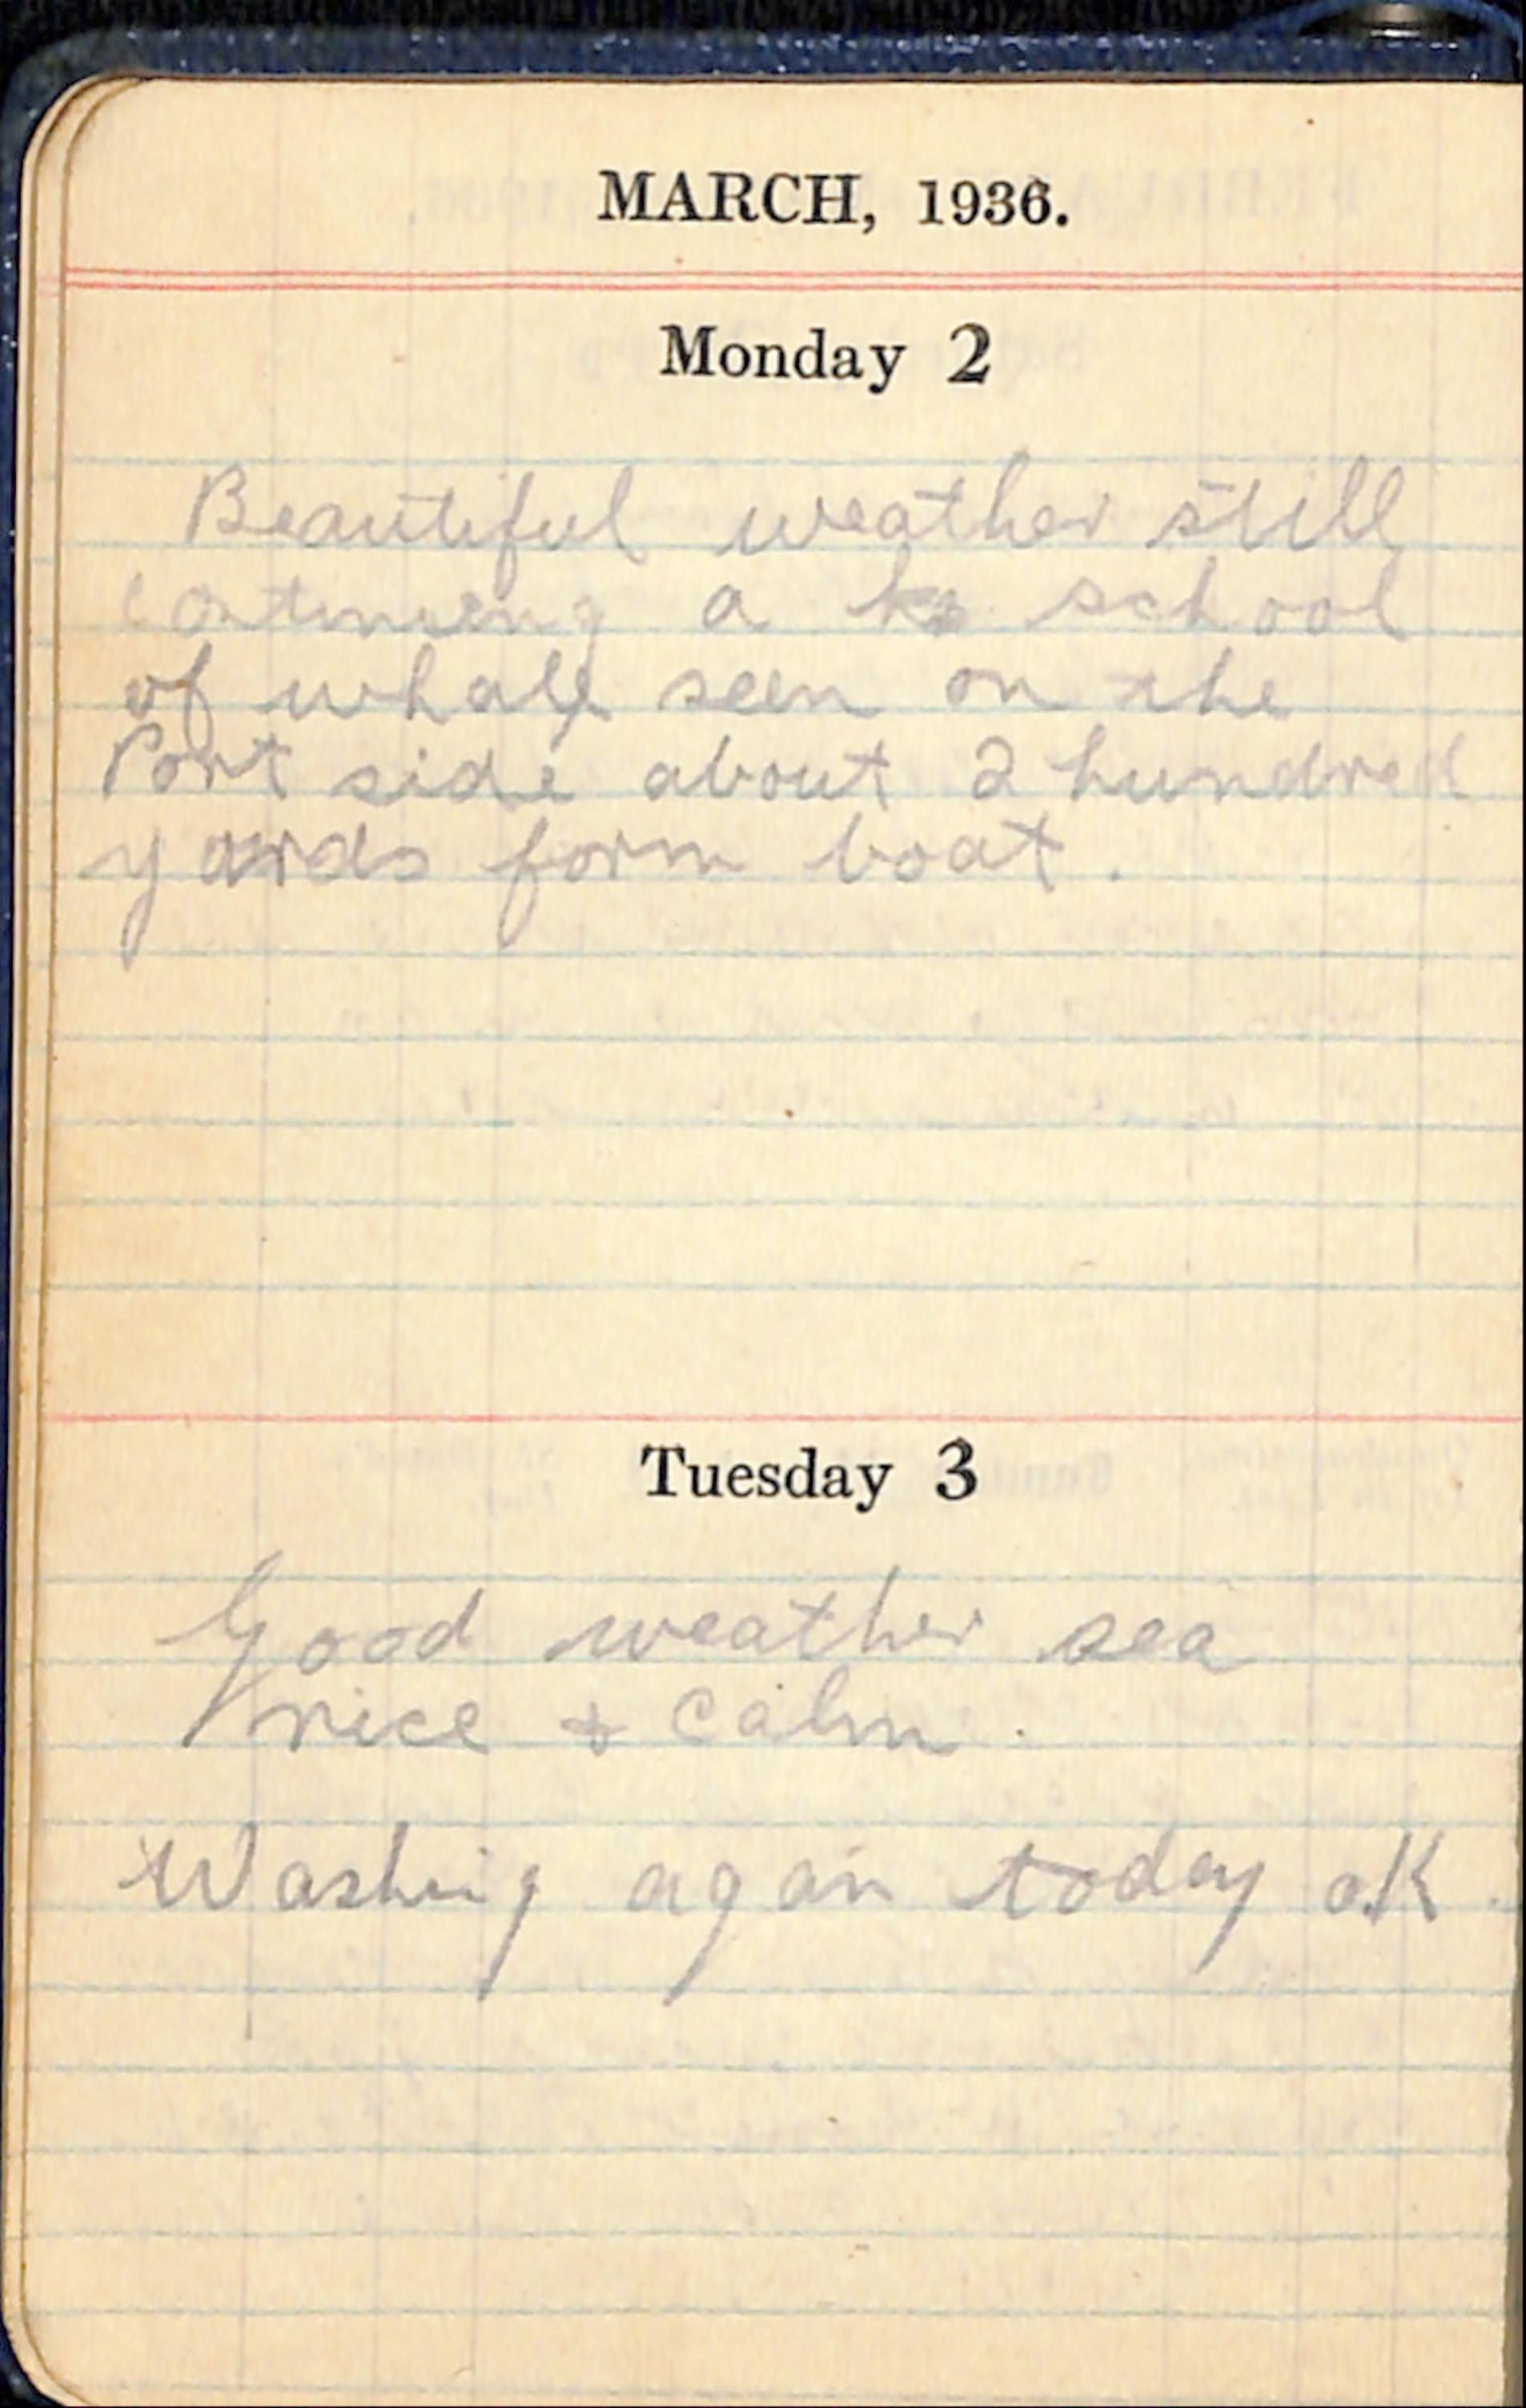 MARCH, 1936.
Monday 2
Beautiful weather still
continuing a school
of whale seen on the
Port side about 2 hundred
yards form boat.
Tuesday 3
Good weather sea
nice & calm.
Washing again today oK.